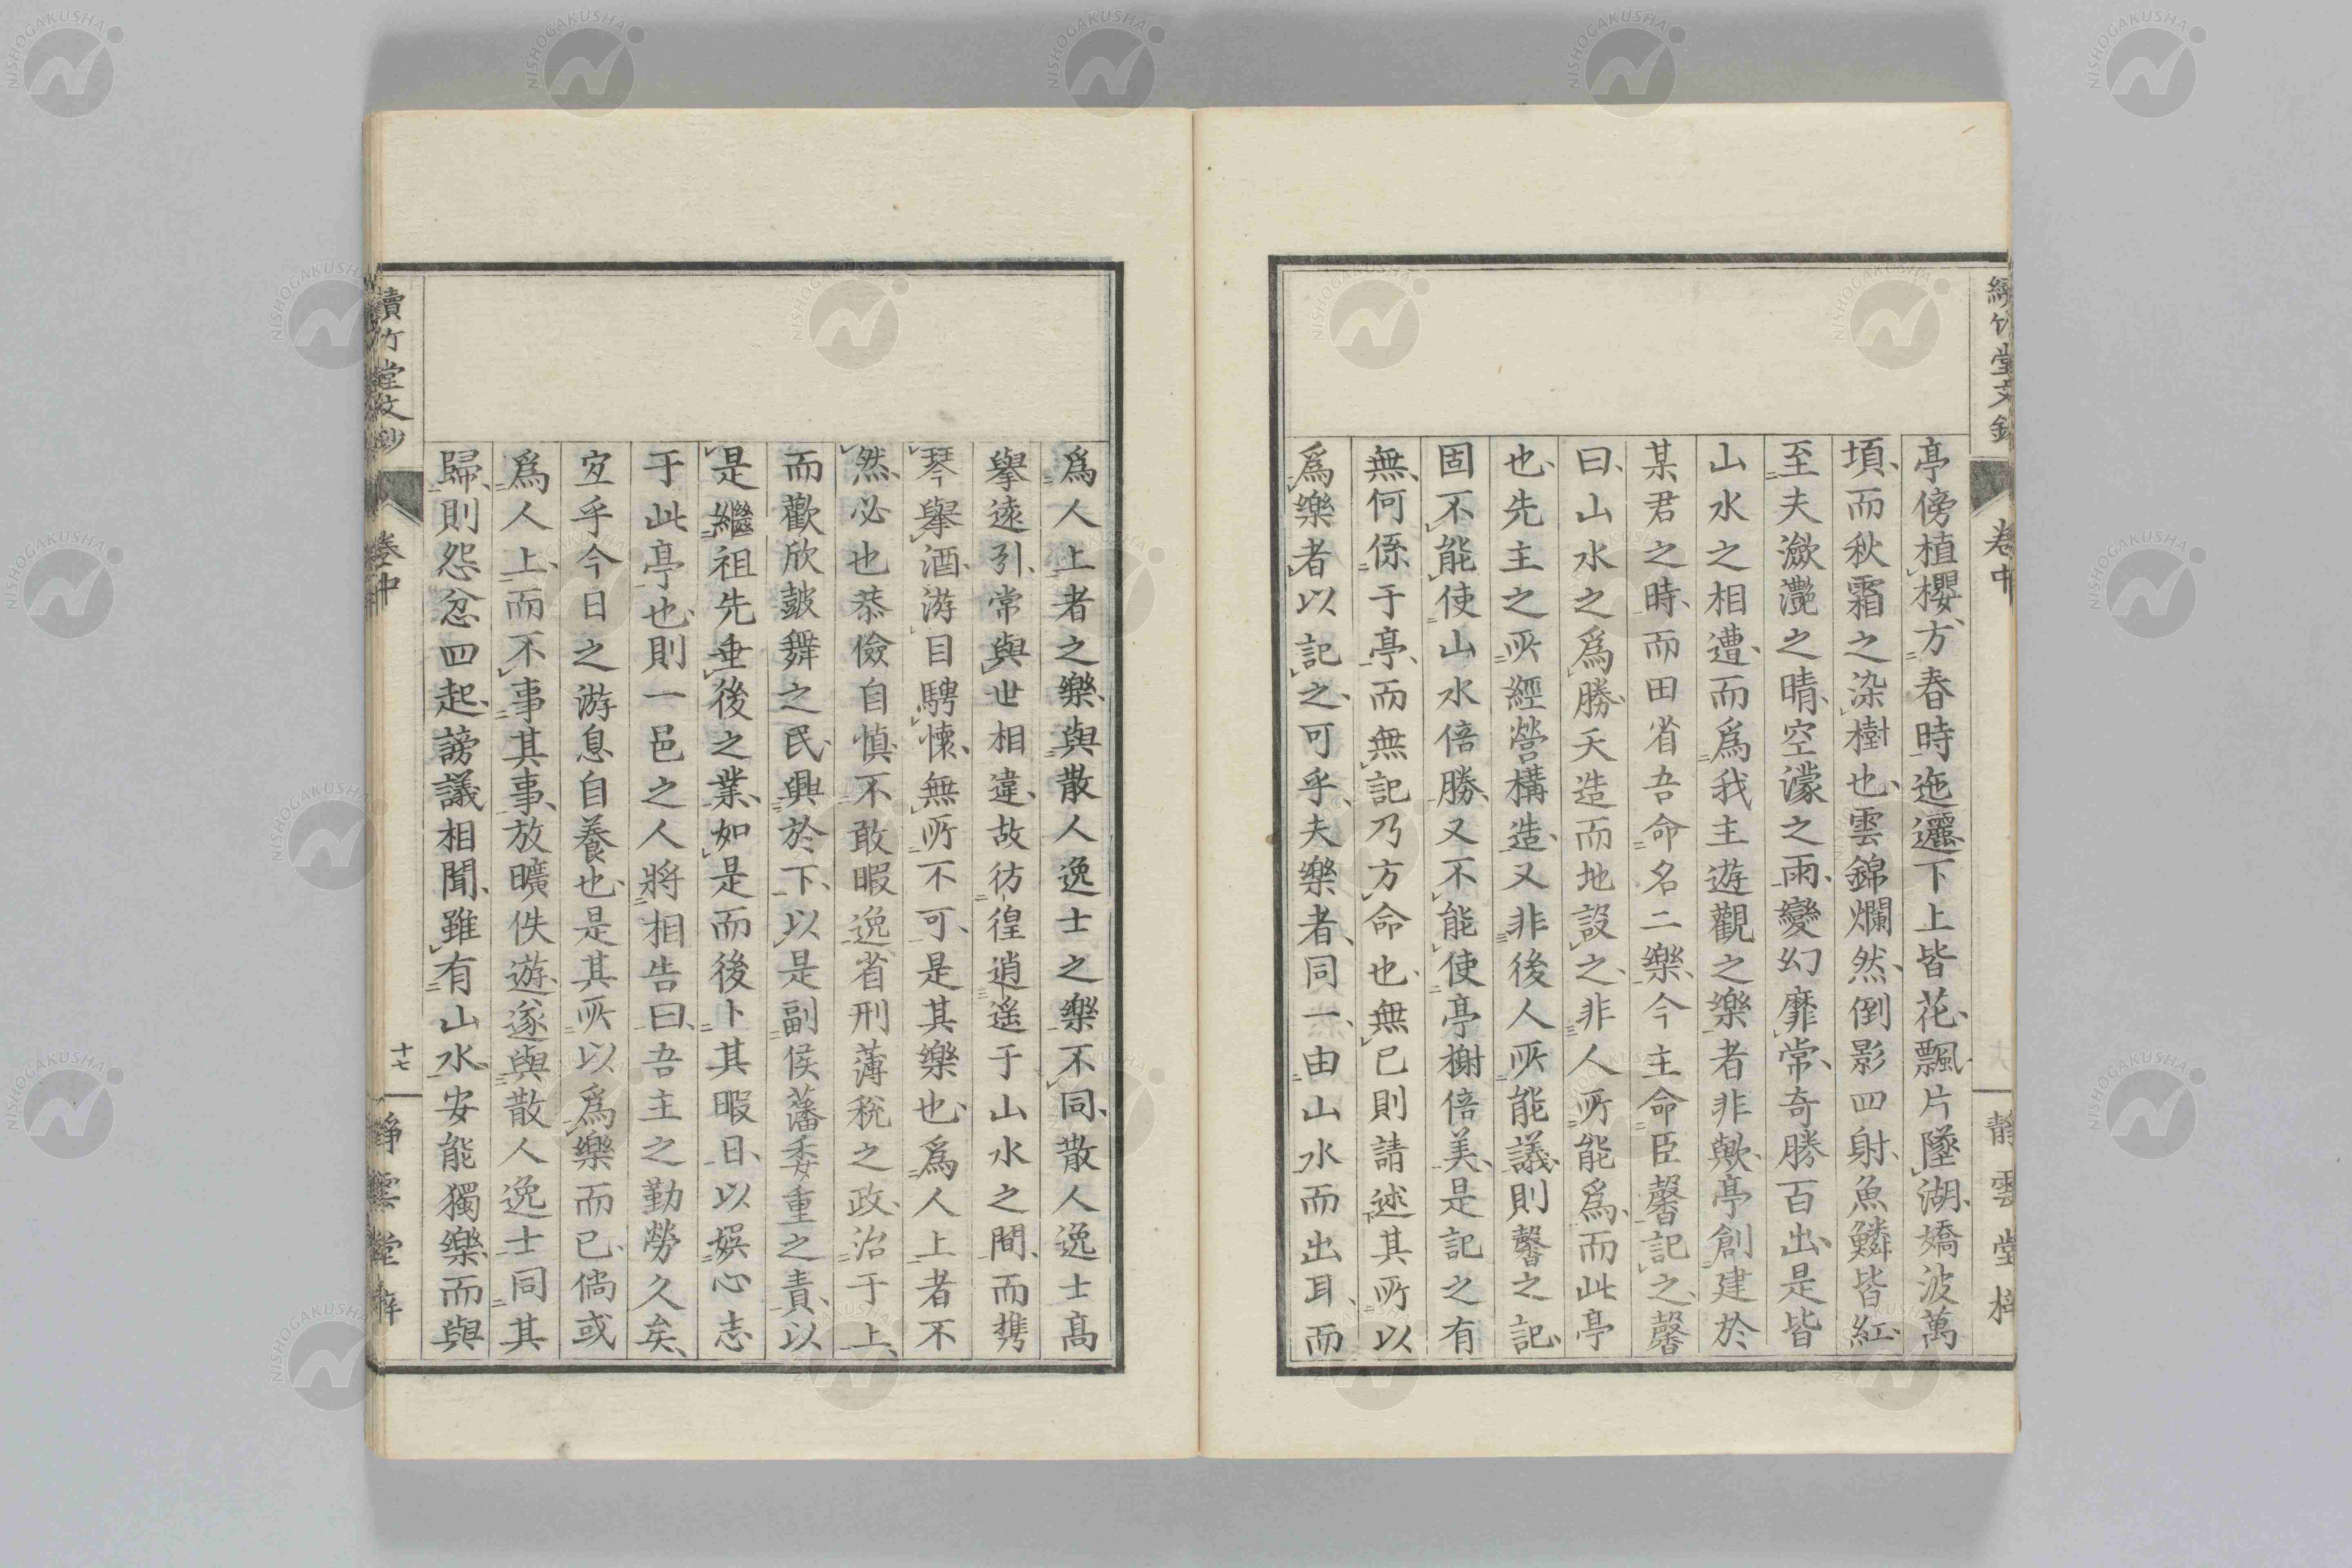 亭傍植櫻、方春時迤邐下上皆花、飄片墜湖、嬌波萬
頃、而秋霜之染樹也、雲錦爛然、倒影四射、魚鱗皆紅、
至夫瀲灧之晴、空濛之雨、變幻靡常、奇勝百出、是皆
山水之相遭、而爲我主遊觀之樂者非歟、亭創建於
某君之時、而田省吾命名二樂、今主命臣馨記之、馨
曰、山水之爲勝、天造而地設之、非人所能爲、而此亭
也、先主之所經營構造、又非後人所能議、則馨之記、
固不能使山水倍勝、又不能使亭榭倍美、是記之有
無、何係于亭、而無記乃方命也、無已則請述其所以
爲樂者以記之、可乎、夫樂者、同一由山水而出耳、而
續竹堂文鈔
卷中
靜雲堂梓
爲人上者之樂、與散人逸士之樂不同、散人逸士高
擧遠引、常與世相違、故彷徨逍遙于山水之間、而携
琴擧酒、游目騁懷、無所不可、是其樂也、爲人上者不
然、必也恭儉自愼、不敢暇逸、省刑薄稅之政、治于上、
而歡欣皷舞之民、興於下、以是副侯藩委重之責、以
是繼祖先垂後之業、如是而後卜其暇日、以娯心志
于此亭也、則一邑之人將相告曰、吾主之勤勞久矣、
宜乎今日之游息自養也、是其所以爲樂而已、倘或
爲人上、而不事其事、放曠佚遊、遂與散人逸士同其
歸、則怨忿四起、謗議相聞、雖有山水、安能獨樂、而與
續竹堂文鈔
卷中
十七
靜雲堂梓